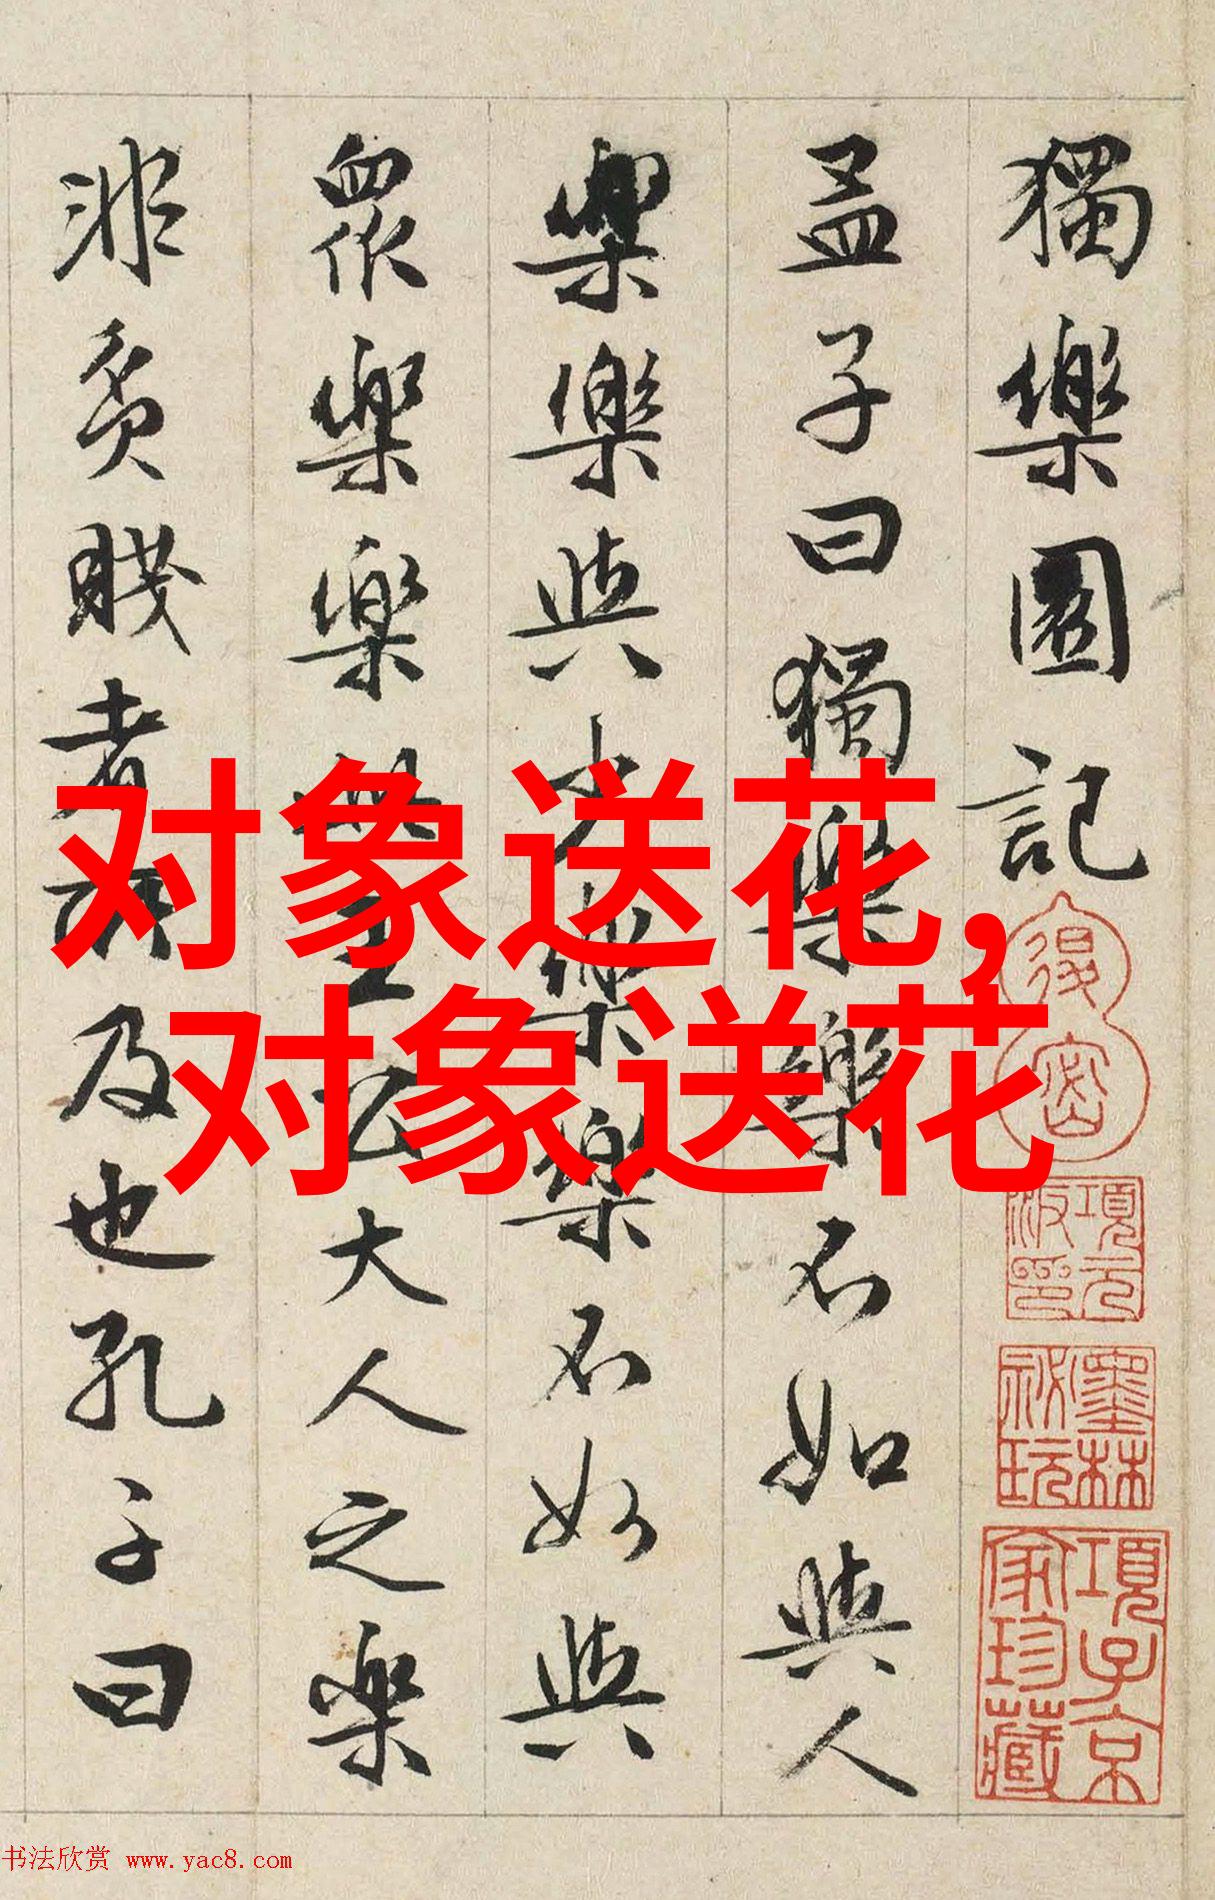 獨樂園記
孟子曰獨樂樂不如與人
樂樂與少樂樂不如與
衆樂樂此王公大人之樂
非貧賤者所及也孔子曰
对象送花,
对象送花
項元汴印
墨林祕玩
項子京家珍藏
书法欣赏 www.yac8.com